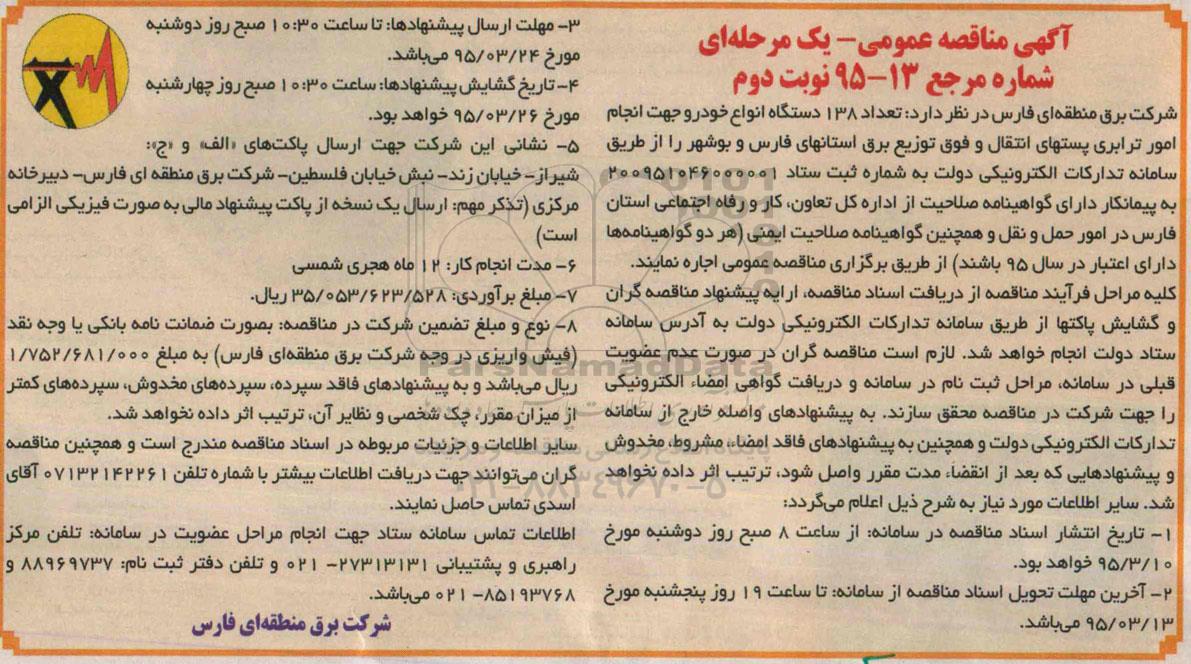 آگهی مناقصه عمومی- یک مرحله‌ای
شماره مرجع ۱۳-۹۵ نوبت دوم
شرکت برق منطقه‌ای فارس در نظر دارد: تعداد ۱۳۸ دستگاه انواع خودرو جهت انجام
امور ترابری پستهای انتقال و فوق توزیع برق استانهای فارس و بوشهر را از طریق
سامانه تدارکات الکترونیکی دولت به شماره ثبت ستاد ۲۰۰۹۵۱۰۴۶۰۰۰۰۰۱
به پیمانکار دارای گواهینامه صلاحیت از اداره کل تعاون، کار و رفاه اجتماعی استان
فارس در امور حمل و نقل و همچنین گواهینامه صلاحیت ایمنی (هر دو گواهینامه‌ها
دارای اعتبار در سال ۹۵ باشند) از طریق برگزاری مناقصه عمومی اجاره نمایند.
کلیه مراحل فرآیند مناقصه از دریافت اسناد مناقصه، ارایه پیشنهاد مناقصه گران
و گشایش پاکتها از طریق سامانه تدارکات الکترونیکی دولت به آدرس سامانه
ستاد دولت انجام خواهد شد. لازم است مناقصه گران در صورت عدم عضویت
قبلی در سامانه، مراحل ثبت نام در سامانه و دریافت گواهی امضاء الکترونیکی
را جهت شرکت در مناقصه محقق سازند. به پیشنهادهای واصله خارج از سامانه
تدارکات الکترونیکی دولت و همچنین به پیشنهادهای فاقد امضاء، مشروط، مخدوش
و پیشنهادهایی که بعد از انقضاَء مدت مقرر واصل شود، ترتیب اثر داده نخواهد
شد. سایر اطلاعات مورد نیاز به شرح ذیل اعلام می‌گردد:
۱- تاریخ انتشار اسناد مناقصه در سامانه: از ساعت ۸ صبح روز دوشنبه مورخ
۹۵/۳/۱۰ خواهد بود.
۲- آخرین مهلت تحویل اسناد مناقصه از سامانه: تا ساعت ۱۹ روز پنجشنبه مورخ
۹۵/۰۳/۱۳ می‌باشد.
۳- مهلت ارسال پیشنهادها: تا ساعت ۱۰:۳۰ صبح روز دوشنبه
مورخ ۹۵/۰۳/۲۴ می‌باشد.
۴- تاریخ گشایش پیشنهادها: ساعت ۱۰:۳۰ صبح روز چهارشنبه
مورخ ۹۵/۰۳/۲۶ خواهد بود.
۵- نشانی این شرکت جهت ارسال پاکت‌های «الف» و «ج»:
شیراز- خیابان زند- نبش خیابان فلسطین- شرکت برق منطقه ای فارس- دبیرخانه
مرکزی (تذکر مهم: ارسال یک نسخه از پاکت پیشنهاد مالی به صورت فیزیکی الزامی
است)
۶- مدت انجام کار: ۱۲ ماه هجری شمسی
۷- مبلغ برآوردی: ۳۵/۰۵۳/۶۲۳/۵۲۸ ریال.
۸- نوع و مبلغ تضمین شرکت در مناقصه: بصورت ضمانت نامه بانکی یا وجه نقد
(فیش واریزی در وجه شرکت برق منطقه‌ای فارس) به مبلغ ۱/۷۵۲/۶۸۱/۰۰۰
ریال می‌باشد و به پیشنهادهای فاقد سپرده، سپرده‌های مخدوش، سپرده‌های کمتر
از میزان مقرر، چک شخصی و نظایر آن، ترتیب اثر داده نخواهد شد.
سایر اطلاعات و جزئیات مربوطه در اسناد مناقصه مندرج است و همچنین مناقصه
گران می‌توانند جهت دریافت اطلاعات بیشتر با شماره تلفن ۰۷۱۳۲۱۴۲۲۶۱ آقای
اسدی تماس حاصل نمایند.
اطلاعات تماس سامانه ستاد جهت انجام مراحل عضویت در سامانه: تلفن مرکز
راهبری و پشتیبانی ۲۷۳۱۳۱۳۱- ۰۲۱ و تلفن دفتر ثبت نام: ۸۸۹۶۹۷۳۷ و
۸۵۱۹۳۷۶۸- ۰۲۱ می‌باشد.
شرکت برق منطقه‌ای فارس
ParsNamadData